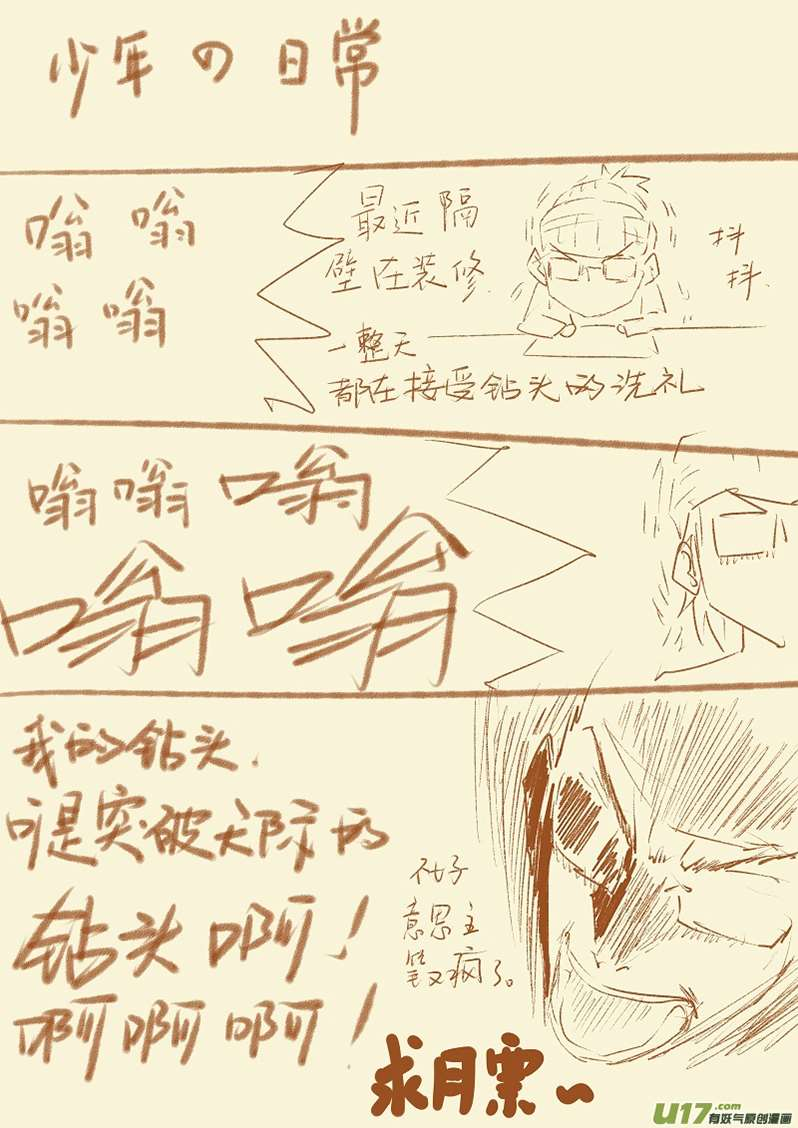 少年の日常
嗡 嗡
嗡 嗡
最近隔
壁在装修.
一整天
都在接受钻头的洗礼
抖
抖.
嗡嗡嗡
嗡嗡
我的钻头.
可是突破天际的
钻头啊!
啊啊啊!
不好
意思主
笔又疯了。
求月票~
U17.com
有妖气原创漫画